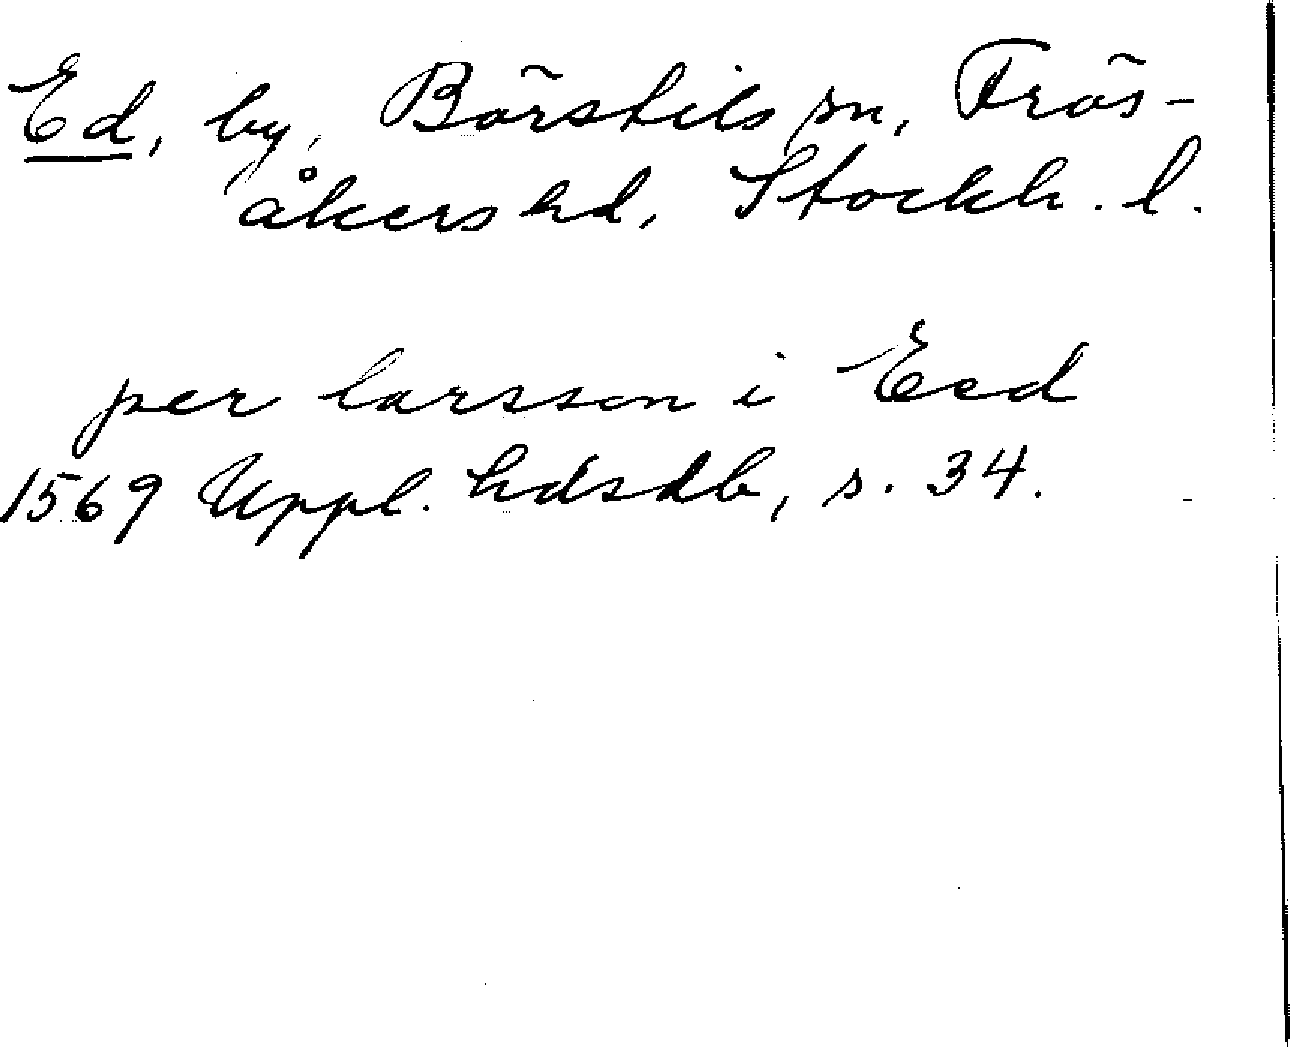 Ed, by, Börstils sn, Frös-
åkers hd, Stockh. l.
per larsson i Eed
1569 Uppl. hdsdb, s. 34.